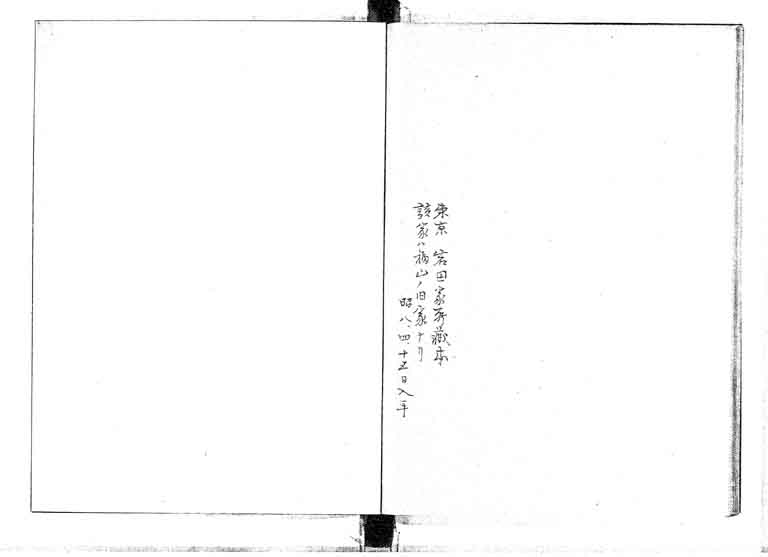 東京 岩田家所蔵本
該家ハ福山ノ旧家ナリ
昭八、四、十五日入手